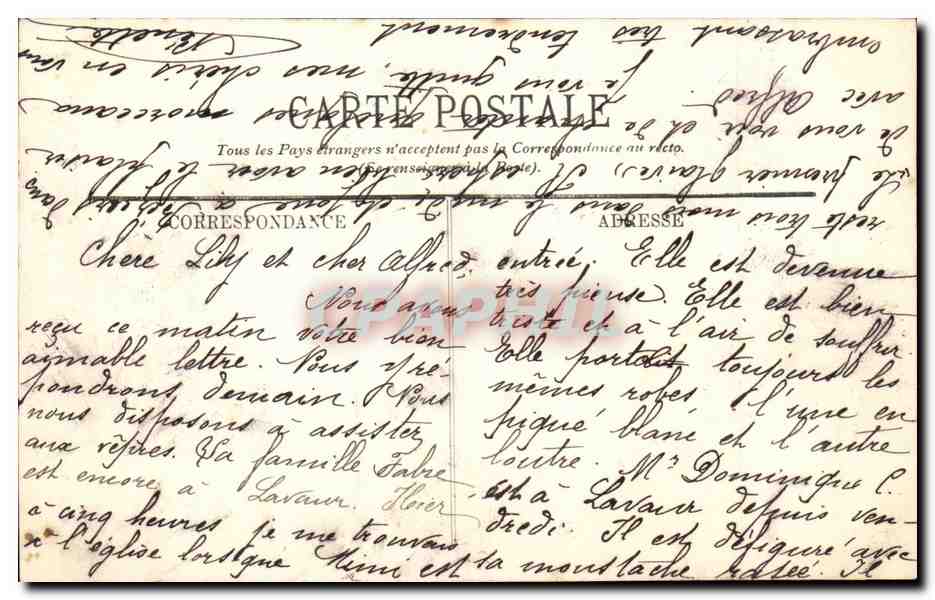 CARTE POSTALE
Tous les Pays étrangers n'acceptent pas la Correspondance au recto.
(Se renseigner à la Poste).
CORRESPONDANCE
ADRESSE
Chère Lily et cher Alfred,
Nous avons
reçu ce matin votre bien
aimable lettre. Nous y ré
pondrons demain. Nous
nous disposons à assister
aux vêpres. La famille Fabre
est encore à Lavaur. Hier
à cinq heures je me trouvais
à l'église lorsque Mimi est
entrée. Elle est devenue
très pieuse. Elle est bien
triste et à l'air de souffrir.
Elle portait toujours les
mêmes robes l'une en
piqué blanc et l'autre
loutre. Mr Dominique C.
est à Lavaur depuis ven-
dredi. Il est défiguré avec
sa moustache rasée. Il
reste trois mois dans le midi et joue à Béziers dans
"Le premier glaive". Et
avoir le plaisir
de vous voir et de morceaux
avec Alfred.
Je vous quitte, mes chéris en vous
embrassant très tendrement